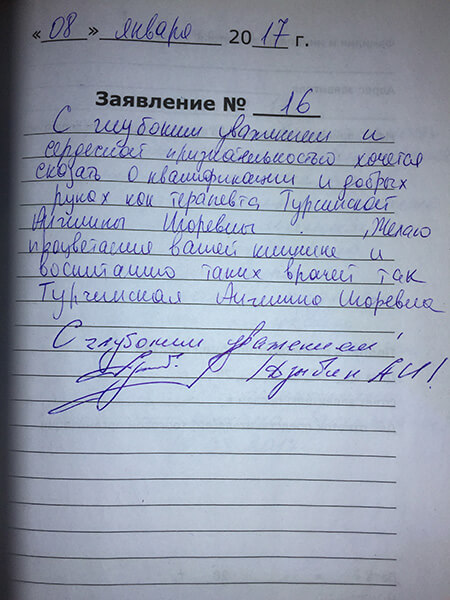 « 08 » января 2017 г.
Заявление № 16
С глубоким уважением и
сердесной признательностью хочется
сказать о квалификации и добрых
руках как терапевта Турчинской
Ангилины Игоревны. Желаю
процветание вашей клинике и
воспитанию таких врачей так
Турчинская Ангилина Игоревна
С глубоким уважением,
Дзыбин А И!